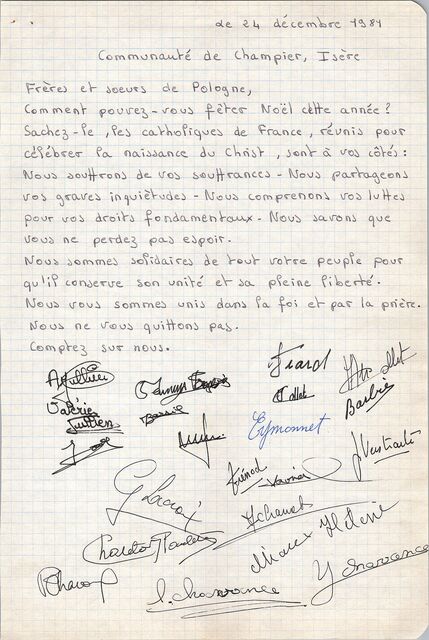 Le 24 décembre 1981
Communauté de Champier, Isère
Frères et soeurs de Pologne,
Comment pouvez-vous fêter Noël cette année ?
Sachez-le, les catholiques de France, réunis pour
célébrer la naissance du Christ, sont à vos côtés :
Nous souffrons de vos souffrances - Nous partageons
vos graves inquiétudes - Nous comprenons vos luttes
pour vos droits fondamentaux - Nous savons que
vous ne perdez pas espoir.
Nous sommes solidaires de tout votre peuple pour
qu'il conserve son unité et sa pleine liberté.
Nous vous sommes unis dans la foi et par la prière.
Nous ne vous quittons pas.
Comptez sur nous.
Valérie
Barbié
Eymonnet